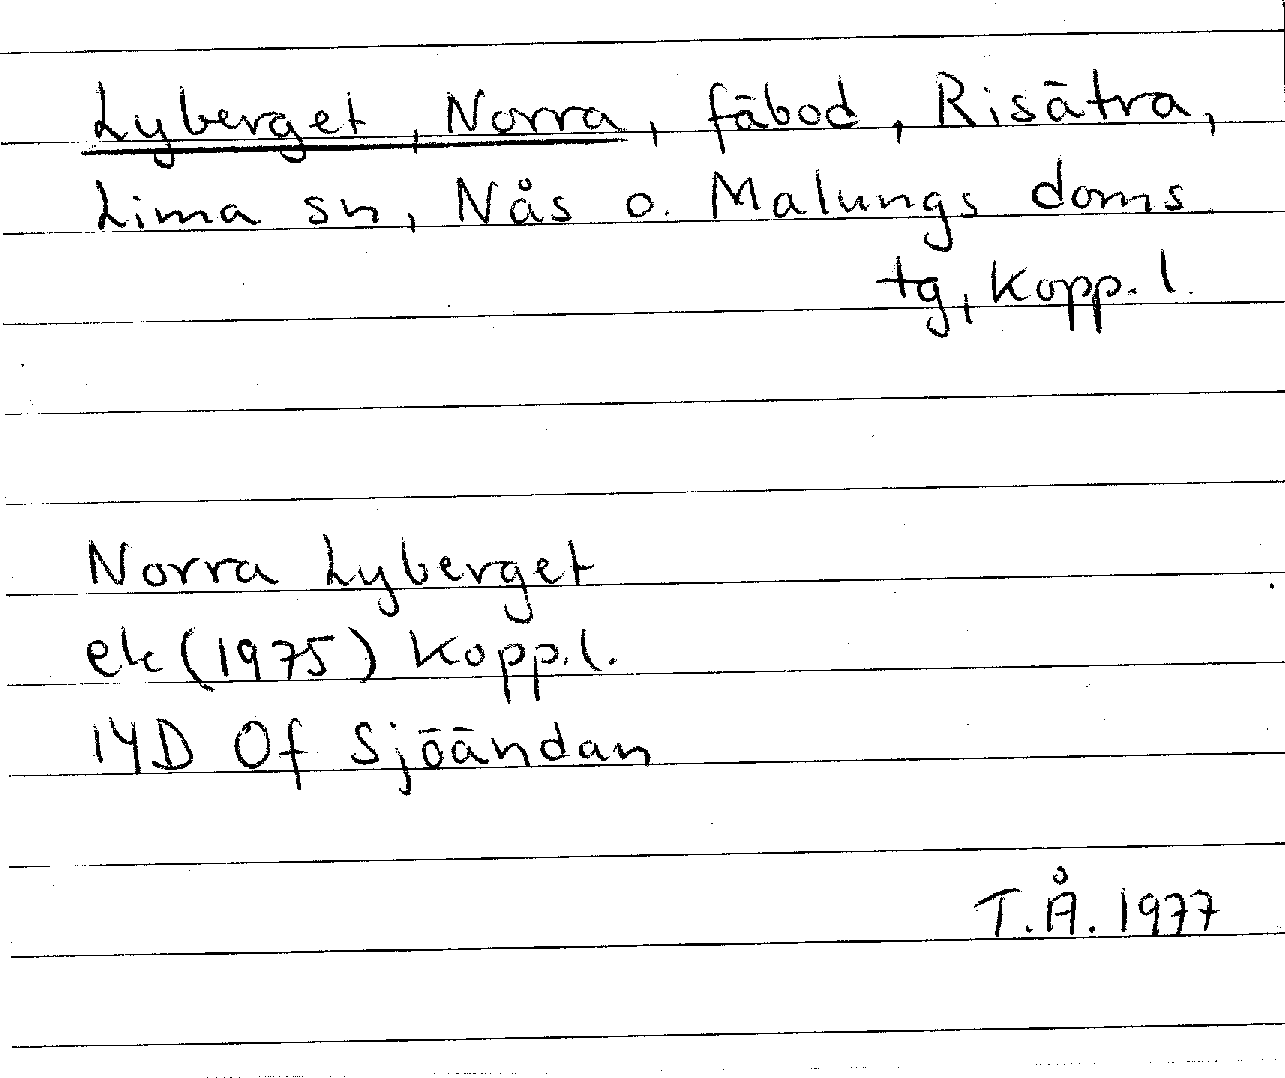 Lyberget, Norra, fäbod, Risätra,
Lima sn, Nås o. Malungs doms
tg, Kopp. l.
Norra Lyberget
ek (1975) Kopp. l.
14D 0f Sjöändan
T.Å. 1977